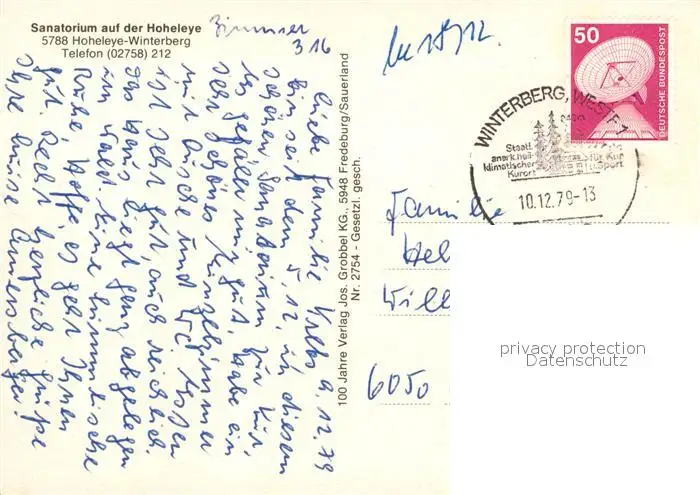 Sanatorium auf der Hoheleye
5788 Hoheleye-Winterberg
Telefon (02758) 212
Zimmer
316
Liebe Familie Krebs 9.12.79
Bin seit dem 5.12. in diesem
schönen Sanatorium zur Kur,
gefällt mir gut, habe ein
sehr schönes Einzelzimmer
mit Dusche und WC. Essen
ist sehr gut, auch reichlich.
Das Haus liegt ganz abgelegen
im Wald. Eine himmlische
Ruhe. Hoffe, es geht Ihnen
gut. Recht herzliche Grüße
Ihre Luise
100 Jahre Verlag Jos. Grobbel KG., 5948 Fredeburg/Sauerland
Nr. 2754 - Gesetzl. gesch.
50
DEUTSCHE BUNDESPOST
WINTERBERG, WESTF 1
Staatl.
anerk. heil-
klimatischer
Kurort
für Kur
Sport
10.12.79-13
Familie
Hel
Will
6050
privacy protection
Datenschutz